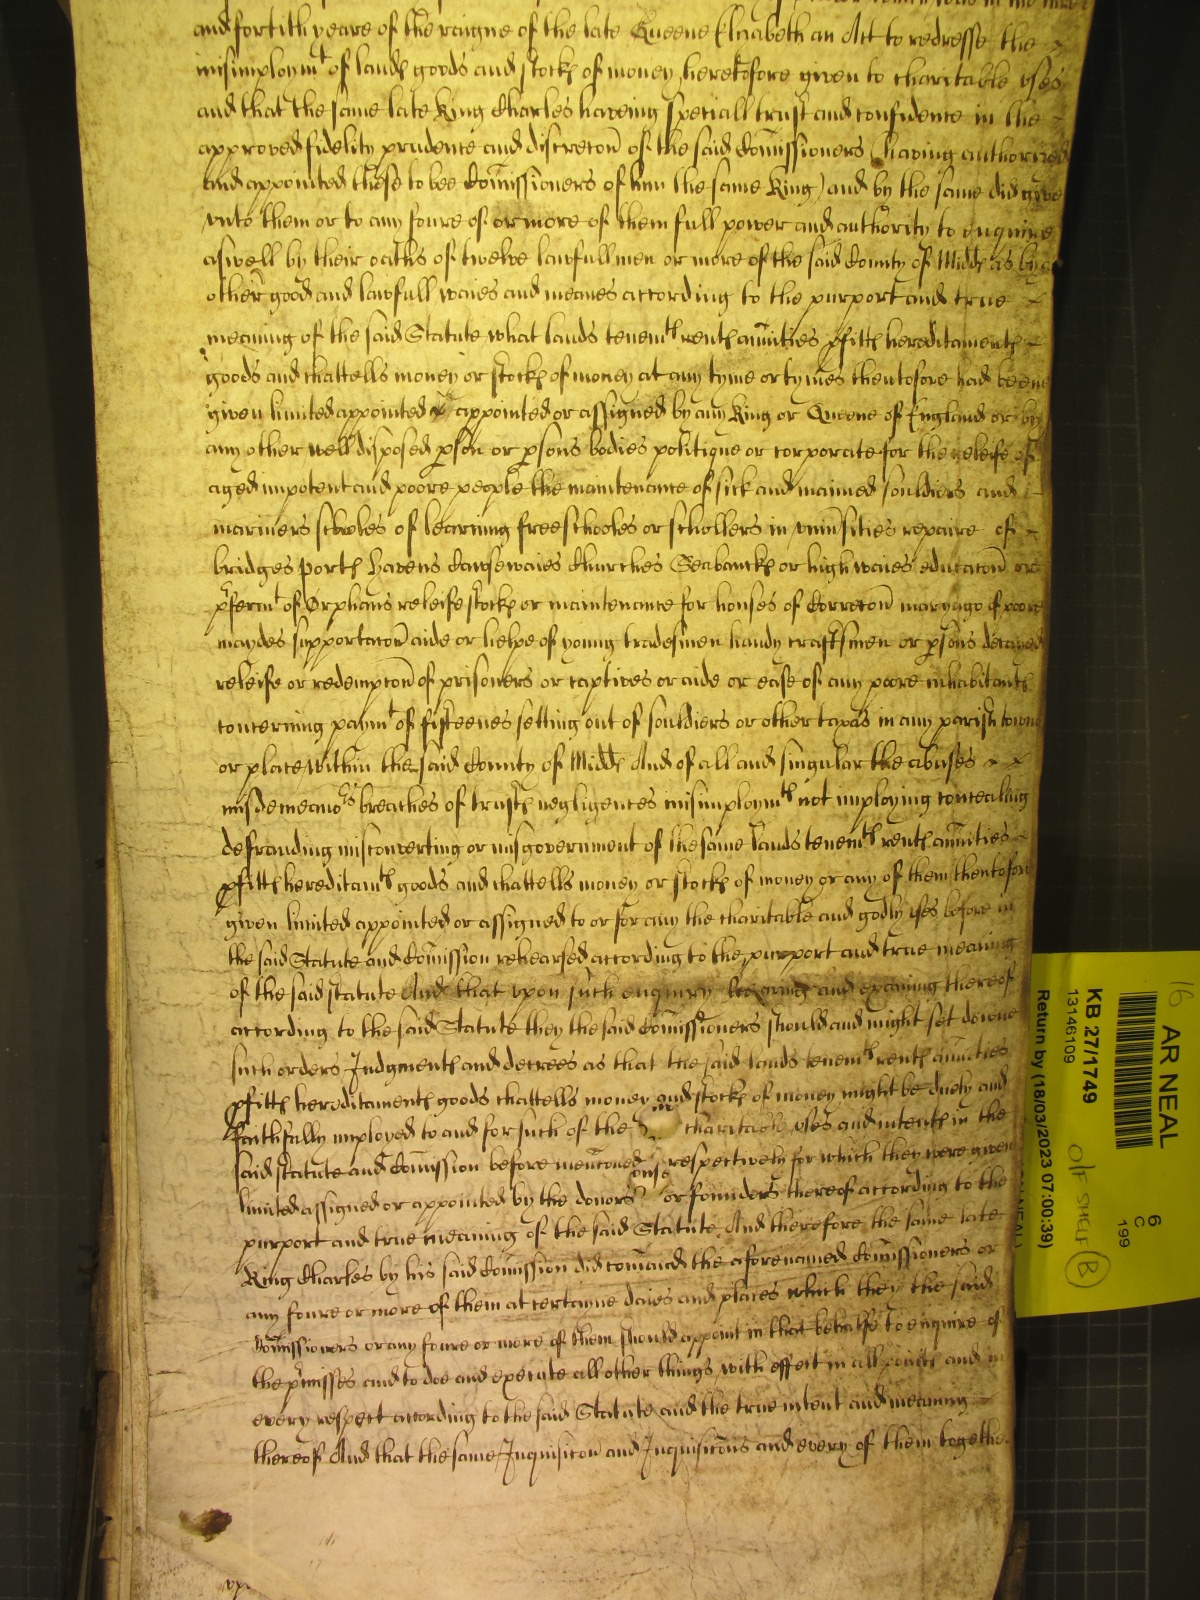 and fortith yeare of the raigne of the late Queene Elizabeth an Act to redresse the
misimploymt of lands goods and stocks of money heretofore given to charitable uses
and that the same late King Charles haveing speciall trust and confidence in the
approved fidelity prudence and discrecon of the said Comissioners (having authorized
and appointed these to bee Comissioners of him the same King) and by the same did give
vnto them or to any foure of or more of them full power and authority to enquire
aswell by their oaths of twelve lawfull men or more of the said County of Midds as by
other good and lawfull waies and meanes according to the purport and true
meaning of the said Statute what lands tenemts rents anuities pfitts hereditaments
goods and chattells money or stocks of money at any tyme or tymes thentofore had beene
given limited appointed appointed or assigned by any King or Queene of England or by
any other well disposed pson or psons bodies politique or corporate for the releife of
aged impotent and poore people the maintenance of sick and maimed souldiers and
mariners schooles of learning free schooles or schollers in vniusities repaire of
bridges Ports Havens Cawsewaies Churches Seabancks or high waies educacon or
pfermt of Orphans releife stocks or maintenance for houses of Correccon maryage of poore
maydes supportacon aide or helpe of young tradesmen handy craftsmen or psons decayed
releife or redempcon of prisoners or captives or aide or ease of any poore inhabitants
concerning paymt of fifteenes setting out of souldiers or other taxes in any parish towne
or place within the said County of Midds And of all and singular the abuses
misdemeanors breaches of trusts negligences misimploymts not imploying concealing
defrauding misconverting or misgovernment of the same lands tenemts rents anuities
pfitts hereditamts goods and chattells money or stocks of money or any of them thentofore
given limited appointed or assigned to or for any the charitable and godly uses before in
the said Statute and Comission rehearsed according to the purport and true meaning
of the said statute And that vpon such enquiry hearing and examing thereof
according to the said Statute they the said Comissioners should and might set downe
such orders Judgments and decrees as that the said lands tenemts rents anuities
pfitts hereditaments goods chattells money and stocks of money might be duely and
faithfully imployed to and for such of the charitable uses and intents in the
said statute and Comission before menconed respectively for which they were given
limited assigned or appointed by the donors or founders thereof according to the
purport and true meaning of the said Statute And therefore the same late
King Charles by his said Comission did comaund the aforenamed Comissioners or
any foure or more of them at certayne daies and places which they the said
Comissioners or any foure or more of them should appoint in that behalfe to enquire of
the pmisses and to doe and execute all other things with effect in all points and in
every respect according to the said Statute and the true intent and meaning
thereof And that the same Inquisicon and Inquisicons and every of them together
16
AR NEAL
KB 27/1749
13146109
Return by (18/03/2023 07:00:39)
O/F SHELF B
6
C
199